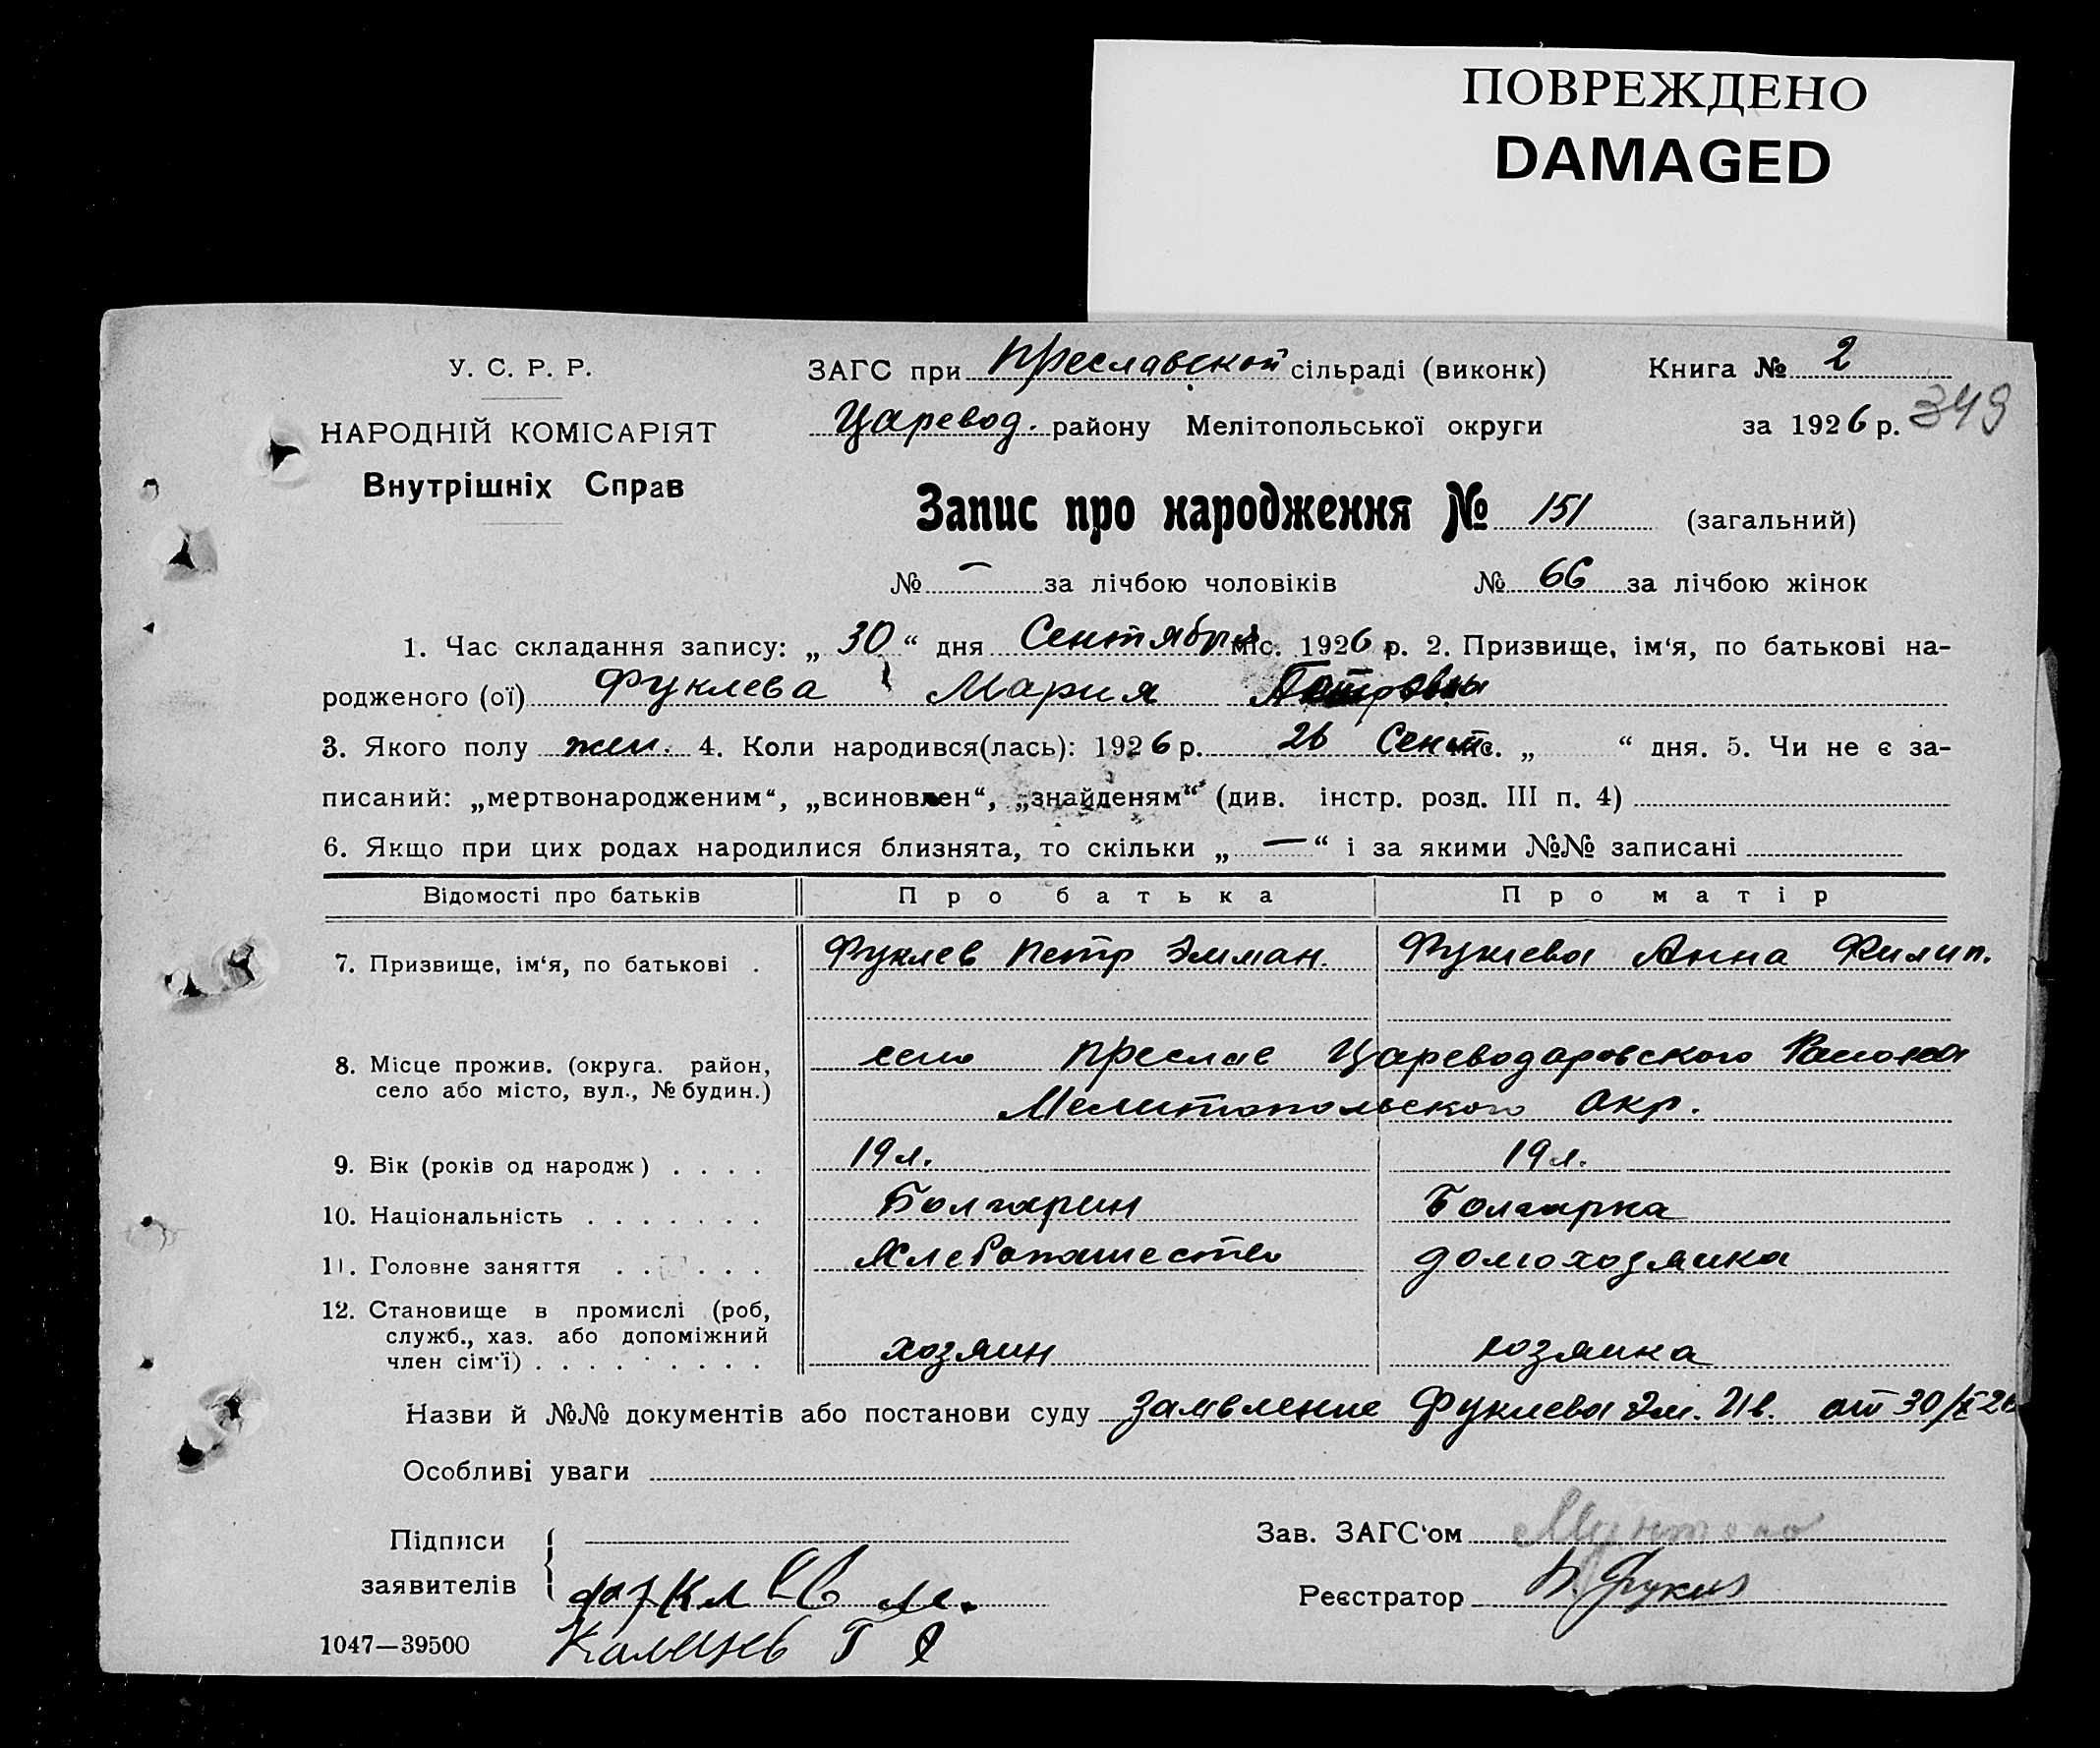 ПОВРЕЖДЕНО
DAMAGED
У. С. Р. Р.
НАРОДНІЙ КОМІСАРІЯТ
Внутрішніх Справ
ЗАГС при Преславской сільраді (виконк) Книга № 2
Царевод. району Мелітопольської округи за 1926 р. 349
Запис про народження № 151 (загальний)
№ — за лічбою чоловіків № 66 за лічбою жінок
1. Час складання запису: „ 30 “ дня Сентября міс. 1926 р. 2. Призвище, ім‘я, по батькові на-
родженого (ої) Фуклева Мария Петровны
3. Якого полу жен. 4. Коли народився(лась): 1926 р. 26 Сент. міс. „ “ дня. 5. Чи не є за-
писаний: „мертвонародженим“, „всиновлен“, „знайденям“ (див. інстр. розд. III п. 4)
6. Якщо при цих родах народилися близнята, то скільки „ — “ і за якими №№ записані
Відомості про батьків Про батька Про матір
7. Призвище, ім‘я, по батькові . Фуклев Петр Эмман. Фуклева Анна Филип.
8. Місце прожив. (округа. район, село Преслав Цареводаровского Района
село або місто, вул., № будин.) Мелитопольского Окр.
9. Вік (років од народж) . . . . 19 л. 19 л.
10. Національність . . . . . . . Болгарин Болгарка
11. Головне заняття . . . . . . Хлебопашество домохозяика
12. Становище в промислі (роб,
служб., хаз. або допоміжний
член сім‘ї) . . . . . . . . . хозяин хозяика
Назви й №№ документів або постанови суду Заявление Фуклева Эм. Ив. от 30/IX 26
Особливі уваги
Підписи Зав. ЗАГС‘ом
заявителів Реєстратор
1047—39500